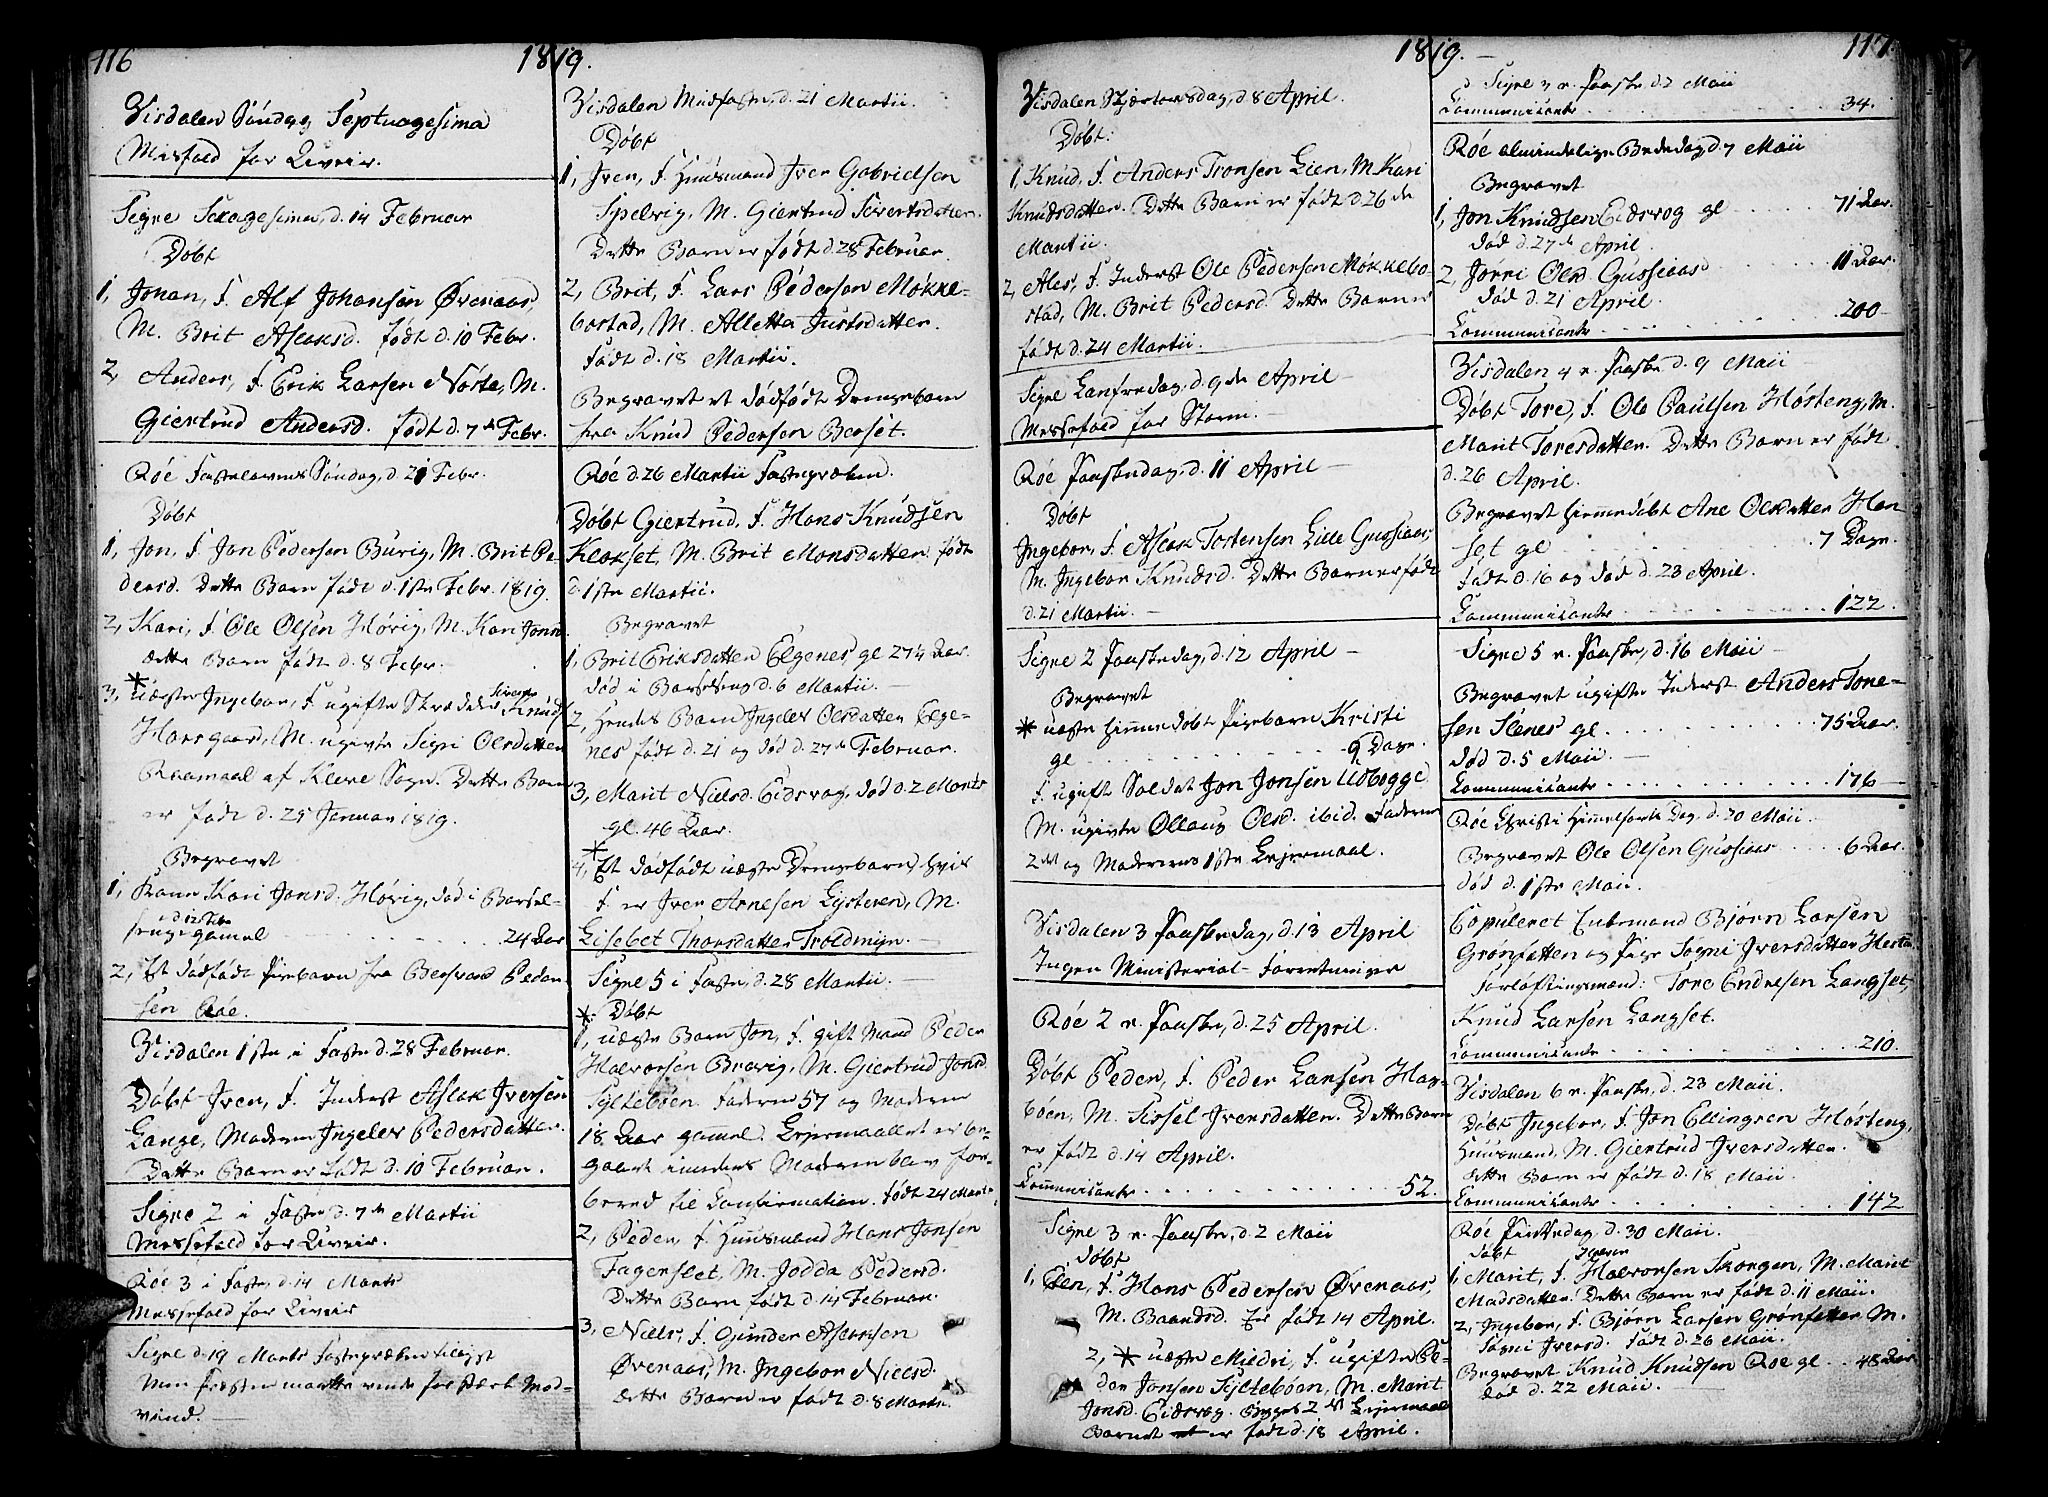 116
1819.
Visdalen Søndag Septuagesima
Messefald for Uveir.
Signe Sexagesima, d. 14 Februar
Døbt
1, Johan, F. Alf Johansen Øvenaas,
M. Brit Aslaksd. født d. 10 Febr.
2, Anders, F. Erik Larsen Nøste, M.
Giertrud Andersd. født d. 7de Febr.
Røe Fastelavens Søndag, d. 21 Febr.
Døbt
1, Jon, F. Jon Pedersen Burig, M. Brit Pe-
dersd. Dette Barn født d. 1ste Febr. 1819.
2, Kari, F. Ole Olsen Hørig, M. Kari Jonsd.
dette Barn født d. 8 Febr.
3, uægte Ingebor, F. ugifte Skrædder Knud
Hansgaard, M. ugivte Signi Olsdatter
Raamaal af Kleve Sogn. Dette Barn
er født d. 25 Januar 1819.
Begravet
1, Kone Kari Jonsd. Hørig, død i Barsel-
seng d. 12 Febr. gamel 24 Aar
2, Et dødfødt Pigebarn fra Bersvend Peder-
sen Røe.
Visdalen 1ste i Faste d. 28 Februar.
Døbt Iver, F. Inderst Aslak Iversen
Lange, Moderen Ingeler Pedersdatter.
Dette Barn er født d. 10 Februar.
Signe 2 i Faste d. 7de Martii
Messefald for Uveir.
Røe 3 i Faste, d. 14 Marts
Messefald for Uveir
Signe d. 19 Marts Fasteprædken tilligst
Men Præsten maatte vende for stærk Mod-
vind.
Visdalen Midfaste, d. 21 Martii.
Døbt
1, Iver, F. Huusmand Iver Gabrielsen
Spelvig, M. Giertrud Sivertsdatter.
Dette Barn er født d. 28 Februar.
2, Brit, F. Lars Pedersen Møkke-
bostad, M. Alletta Justsdatter.
født d. 18 Martii.
Begravet et dødfødt Drengebarn
fra Knud Pedersen Berset.
Røe d. 26 Martii Fasteprædken.
Døbt Giertrud, F. Hans Knudsen
Klokset, M. Brit Monsdatter. født
d. 1ste Martii.
Begravet
1, Brit Eriksdatter Elgenes gl 27¼ Aar.
død i Barselseng d. 6 Martii.
2, Hendes Barn Ingeler Olsdatter Elge-
nes født d. 21 og død d. 27de Februar.
3, Marit Nielsd. Eidsvog, død d. 2 Marts
gl. 46 Aar.
4, Et dødfødt uægte Drengebarn, hvis
F. er Iver Arnesen Lysteren, M.
Lisebet Thorsdatter Troldmyr.
Signe 5 i Faste, d. 28 Martii.
Døbt
1, uægte Barn Jon, F. gift Mand Peder
Halvorsen Brevig, M. Giertrud Jonsd.
Syltebøen. Faderen 57 og Moderen
18 Aar gammel. Leiermaallet er be-
gaaet inden Moderen blev for-
bered til Confirmation. født 24 Martii
2, Peder, F. Huusmand Hans Jonsen
Fagerslet, M. Jodda Pedersd.
Dette Barn født d. 14 Februar.
3, Niels, F. Gunder Aslaksen
Øvenaas, M. Ingebor Nielsd.
dette Barn er født d. 8 Martii.
1819.
117.
Visdalen Skjærtorsdag, d. 8 April.
Døbt:
1, Knud, F. Anders Tronsen Lien, M. Kari
Knudsdatter. Dette Barn er født d. 26de
Martii.
2, Ales, F. Inderst Ole Pedersen Møkkebo-
stad, M. Brit Pedersd. Dette Barn er
født d. 24 Martii.
Signe Lanfredag, d. 9de April
Messefald for Storm.
Røe Paaskedag, d. 11 April
Døbt
Ingebor, F. Aslak Tostensen Lille Gussiaas,
M. Ingebor Knudsd. Dette Barn er født
d. 21 Martii.
Signe 2 Paaskedag, d. 12 April
Begravet
* uægte hiemmedøbt Pigebarn Kristi
gl 9 Dage.
F. ugift Soldat Jon Jonsen Udbogge
M. ugivte Ollaug Olsd. ibid. Faderens
2det og Moderens 1ste Leiermaal.
Visdalen 3 Paaskedag, d. 13 April
Ingen Ministerial-Forretninger
Røe 2 e. Paaske, d. 25 April.
Døbt Peder, F. Peder Larsen Hag-
bøen, M. Sissel Iversdatter. Dette Barn
er født d. 14 April.
Communicanter 52.
Signe 3 e. Paaske, d. 2 Maii
Døbt
1, Elen, F. Hans Pedersen Øvenaas,
M. Baardsd. Er født 14 April.
2, * uægte Mildri, F. ugifte Pe-
der Jonsen Syltebøen, M. Marit
Jonsd. Eidsvog. Begges 2det Leiermaal
Barnet er født d. 18 April.
d. Signe 3 e. Paaske d. 2 Maii
Communicanter 34.
Røe almindelige Bededag, d. 7 Maii
Begravet
1, Jon Knudsen Eidsvog gl 71 Aar.
død d. 27de April.
2, Jørri Olsd. Gussiaas 11 Aar.
død d. 21 April.
Communicanter 200
Visdalen 4 e. Paaske d. 9 Maii
Døbt Tore, F. Ole Paulsen Høsteng, M.
Marit Toresdatter. Dette Barn er født
d. 26 April.
Begravet hiemmedøbt Ane Olsdatter Han-
set gl 7 Dage.
født d. 16 og død d. 23 April.
Communicanter 122.
Signe 5 e. Paaske, d. 16 Maii
Begravet ugifte Inderst Anders Tore-
sen Stenes gl. 75 Aar.
død d. 5 Maii.
Communicanter 176
Røe Christi Himmelfarts Dag d. 20 Maii.
Begravet Ole Olsen Gussiaas 6 Aar.
død d. 1ste Maii.
Copuleret Enkemand Bjørn Larsen
Grønsetter og Pige Sogni Iversdatter
Forløftningsmænd: Tore Endresen Langset,
Knud Larsen Langset.
Communicanter 210.
Visdalen 6 e. Paaske, d. 23 Maii.
Døbt Ingebor, F. Jon Ellingsen Høsteng,
Huusmand, M. Giertrud Iversdatter.
dette Barn er født d. 18 Maii.
Communicanter 142
Røe Pintsedag, d. 30 Maii.
døbt
1, Marit, F. Halvorsen Skorgen, M. Marit
Madsdatter. Dette Barn er født d. 11 Maii.
2, Ingebor, F. Bjørn Larsen Grønsetter M.
Sogni Iversd. født d. 26 Maii.
Begravet Knud Knudsen Røe gl 48 Aar
død d. 22 Maii.